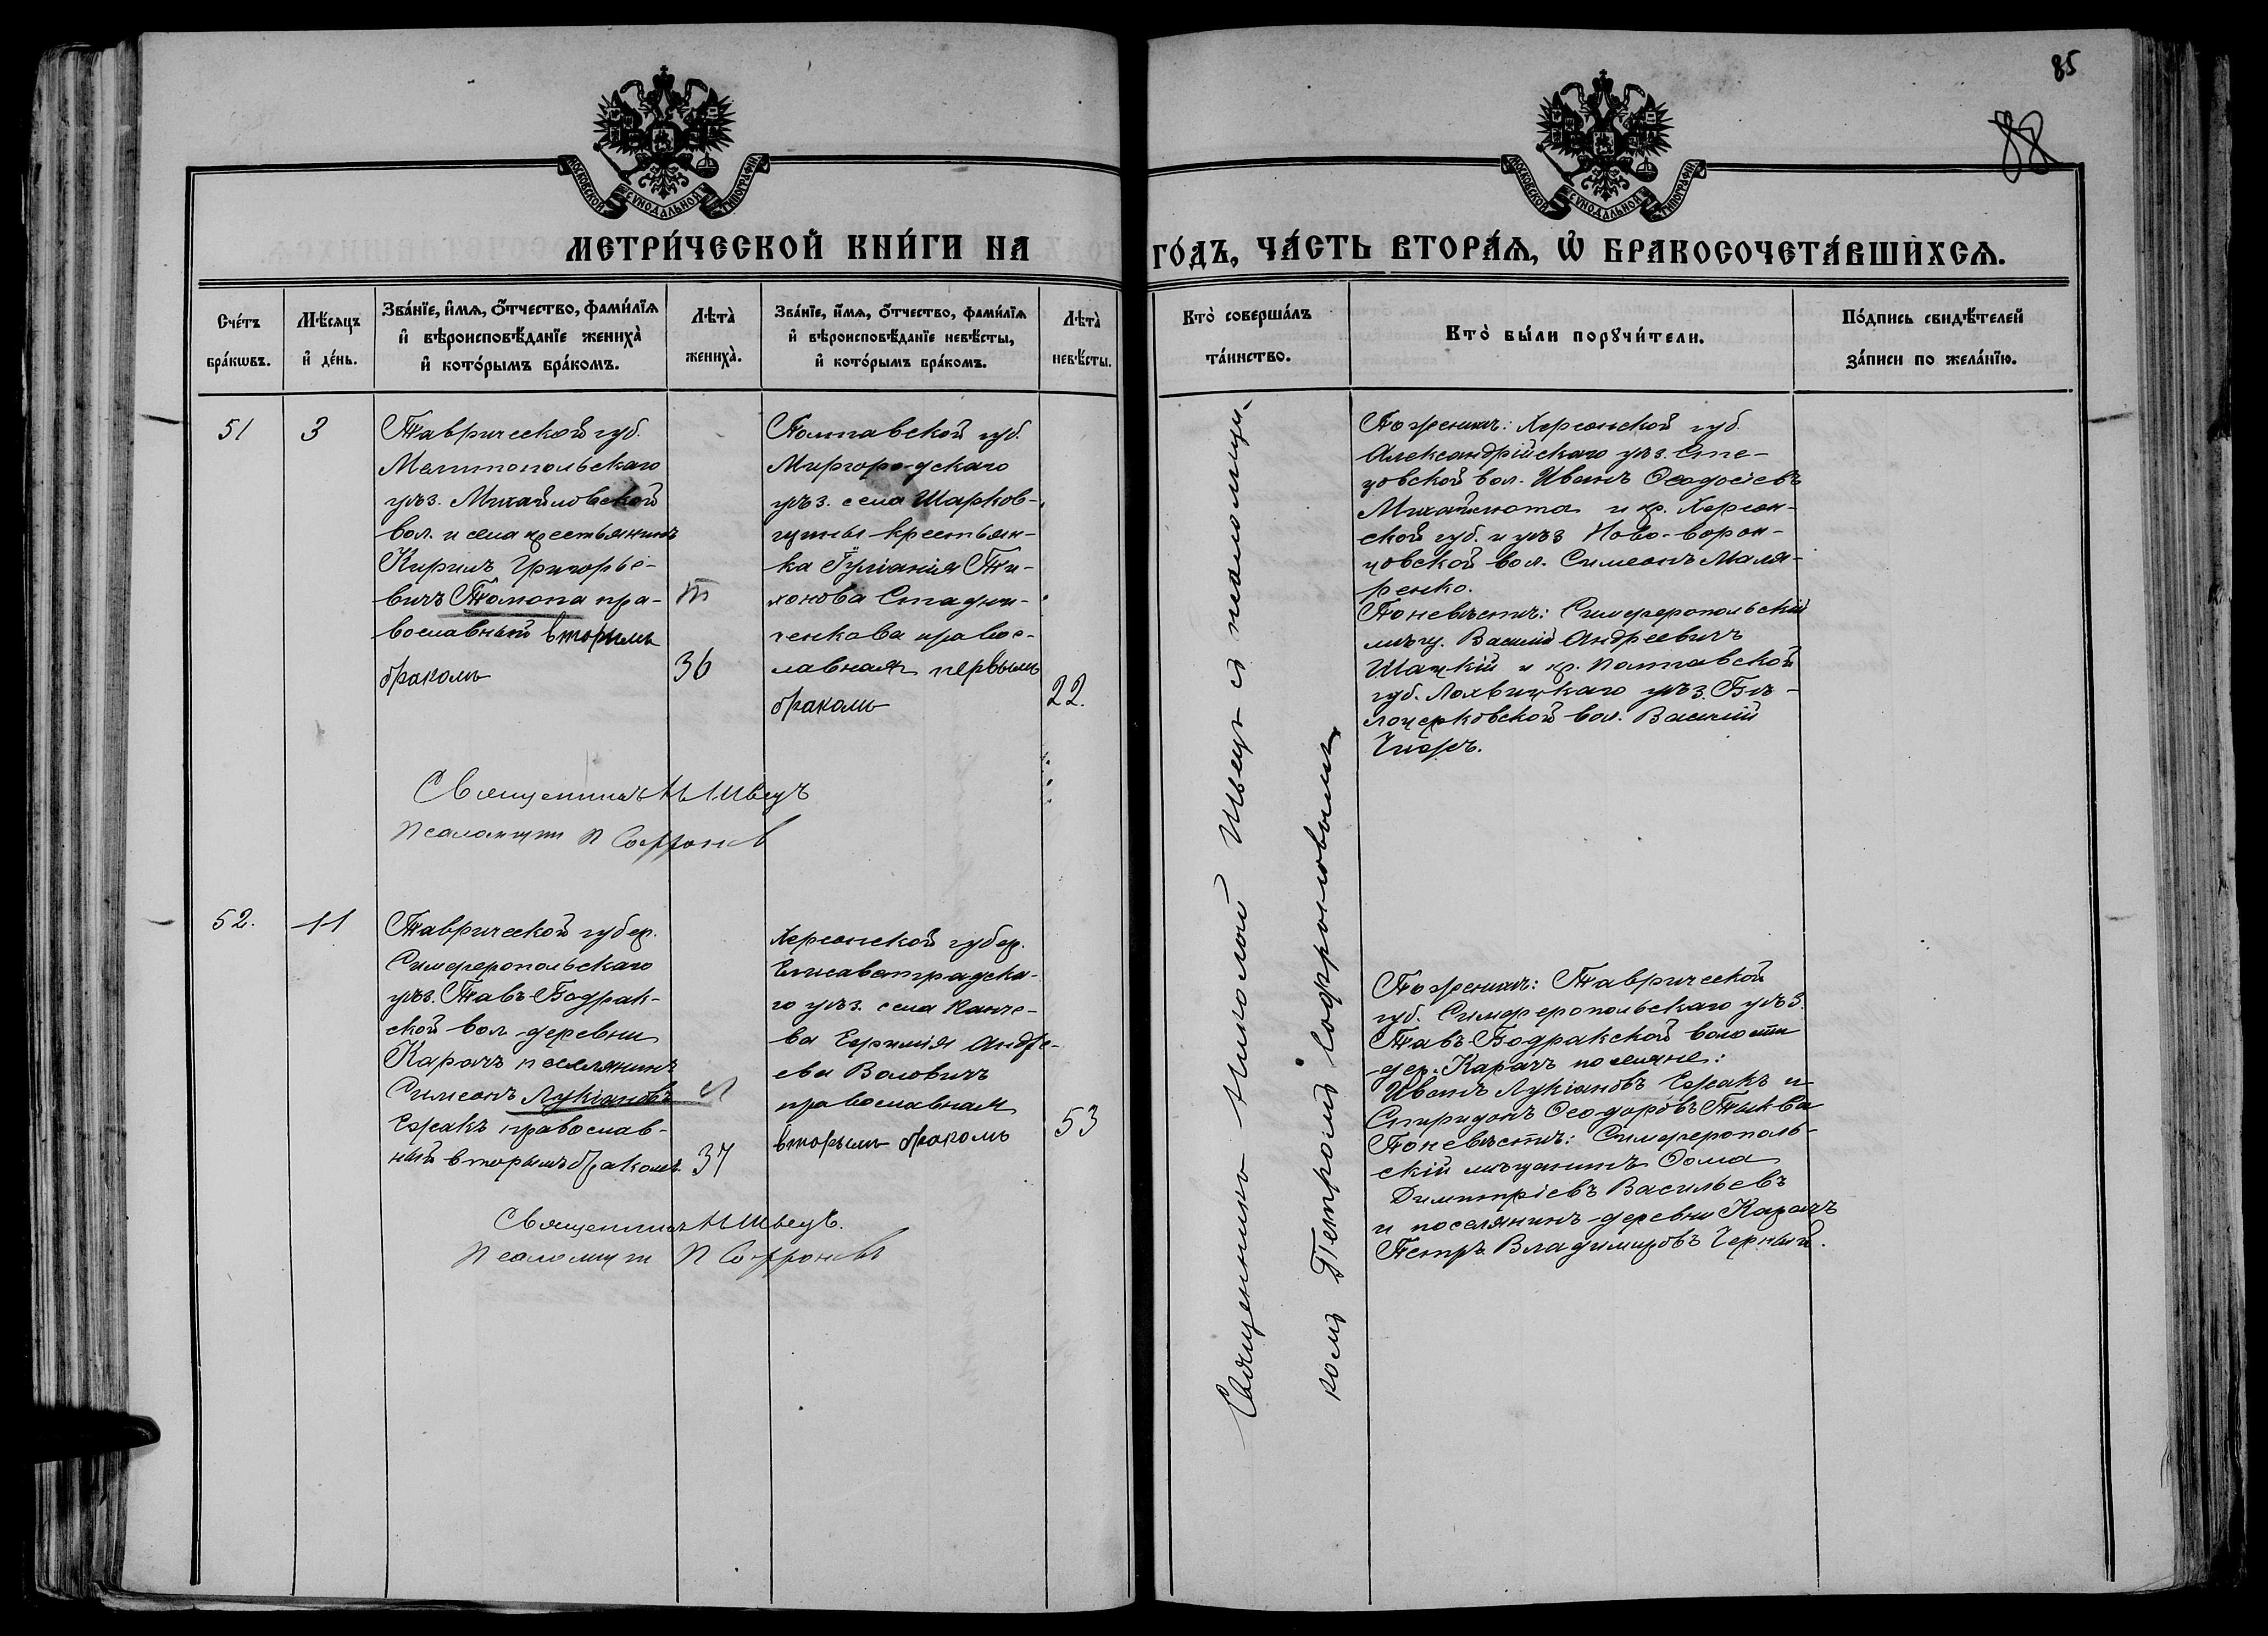 85
88
МОСКОВСКОЙ СѴНОДАЛЬНОЙ ТИПОГРАФІИ
МОСКОВСКОЙ СѴНОДАЛЬНОЙ ТИПОГРАФІИ
МЕТРИ́ЧЕСКОЙ КНИ́ГИ НА
ГО́ДЪ, ЧА́СТЬ ВТОРА́Ѧ, Ѽ БРАКОСОЧЕТА́ВШИХСѦ.
Сче́тъ бра́кѡвъ.
Мѣ́сѧцъ и҆ де́нь.
Зва́нїе, и҆́мѧ, ѻ҆́тчество, фамѝлїѧ
и҆ вѣроисповѣ́данїе жениха̀
и҆ кото́рымъ бра́комъ.
Лѣта̀ жениха̀.
Зва́нїе, и҆́мѧ, ѻ҆́тчество, фамѝлїѧ
и҆ вѣроисповѣ́данїе невѣ́сты,
и҆ кото́рымъ бра́комъ.
Лѣта̀ невѣ́сты.
Кто̀ соверша́лъ
та́инство.
Кто̀ бы́ли порꙋчи́тели.
По́дпись свидѣ́телей
за́писи по жела́нїю.
51
3
Таврической губ.
Мелитопольскаго
уѣз. Михайловской
вол. и села крестьянинъ
Кирилъ Григорье-
вичъ Топопа пра-
вославный вторымъ
бракомъ
36
Полтавской губ.
Миргородскаго
уѣз. села Шарков-
щины крестьян-
ка Іуліанія Ти-
хонова Стадни-
ченкова правос-
лавная первымъ
бракомъ
22.
Священникъ Н Швецъ
Псаломщик П Софронов
Священникъ Николай Швецъ съ псаломщи-
комъ Петромъ Софроновымъ
По женихѣ: Херсонской губ.
Александрійскаго уѣз. Сте-
цовской вол. Иванъ Ѳеодосіевъ
Михайлюта и кр. Херсон-
ской губ. и уѣз Ново-ворон-
цовской вол. Симеонъ Маля-
ренко.
По невѣстѣ: Симферопольскій
мѣщ. Василій Андреевичъ
Шацкій и кр. Полтавской
губ. Лохвицкаго уѣз. Бѣ-
лоцерковской вол. Василій
52.
11
Таврической губер.
Симферопольскаго
уѣз. Тавъ-Бодрак-
ской вол деревни
Карачъ поселянинъ
Симеонъ Лукіановъ
Ежакъ православ-
ный вторымъ бракомъ.
37
Херсонской губер.
Елисаветградска-
го уѣз. села Канче-
ва Евфимія Андре-
ева Воловичъ
православная
вторымъ бракомъ
53
Священникъ Н Швецъ.
Псаломщик П Софроновъ
По женихѣ: Таврической
губ. Симферопольскаго уѣз.
Тавъ-Бодракской волости
дер. Карачъ поселяне:
Иванъ Лукіановъ Ежакъ и
Спиридонъ Ѳеодоровъ Тыква
По невѣстѣ: Симферополь-
скій мѣщанинъ Ѳома
Димитріевъ Васильевъ
и поселянинъ деревни Карачъ
Петръ Владиміровъ Черный.